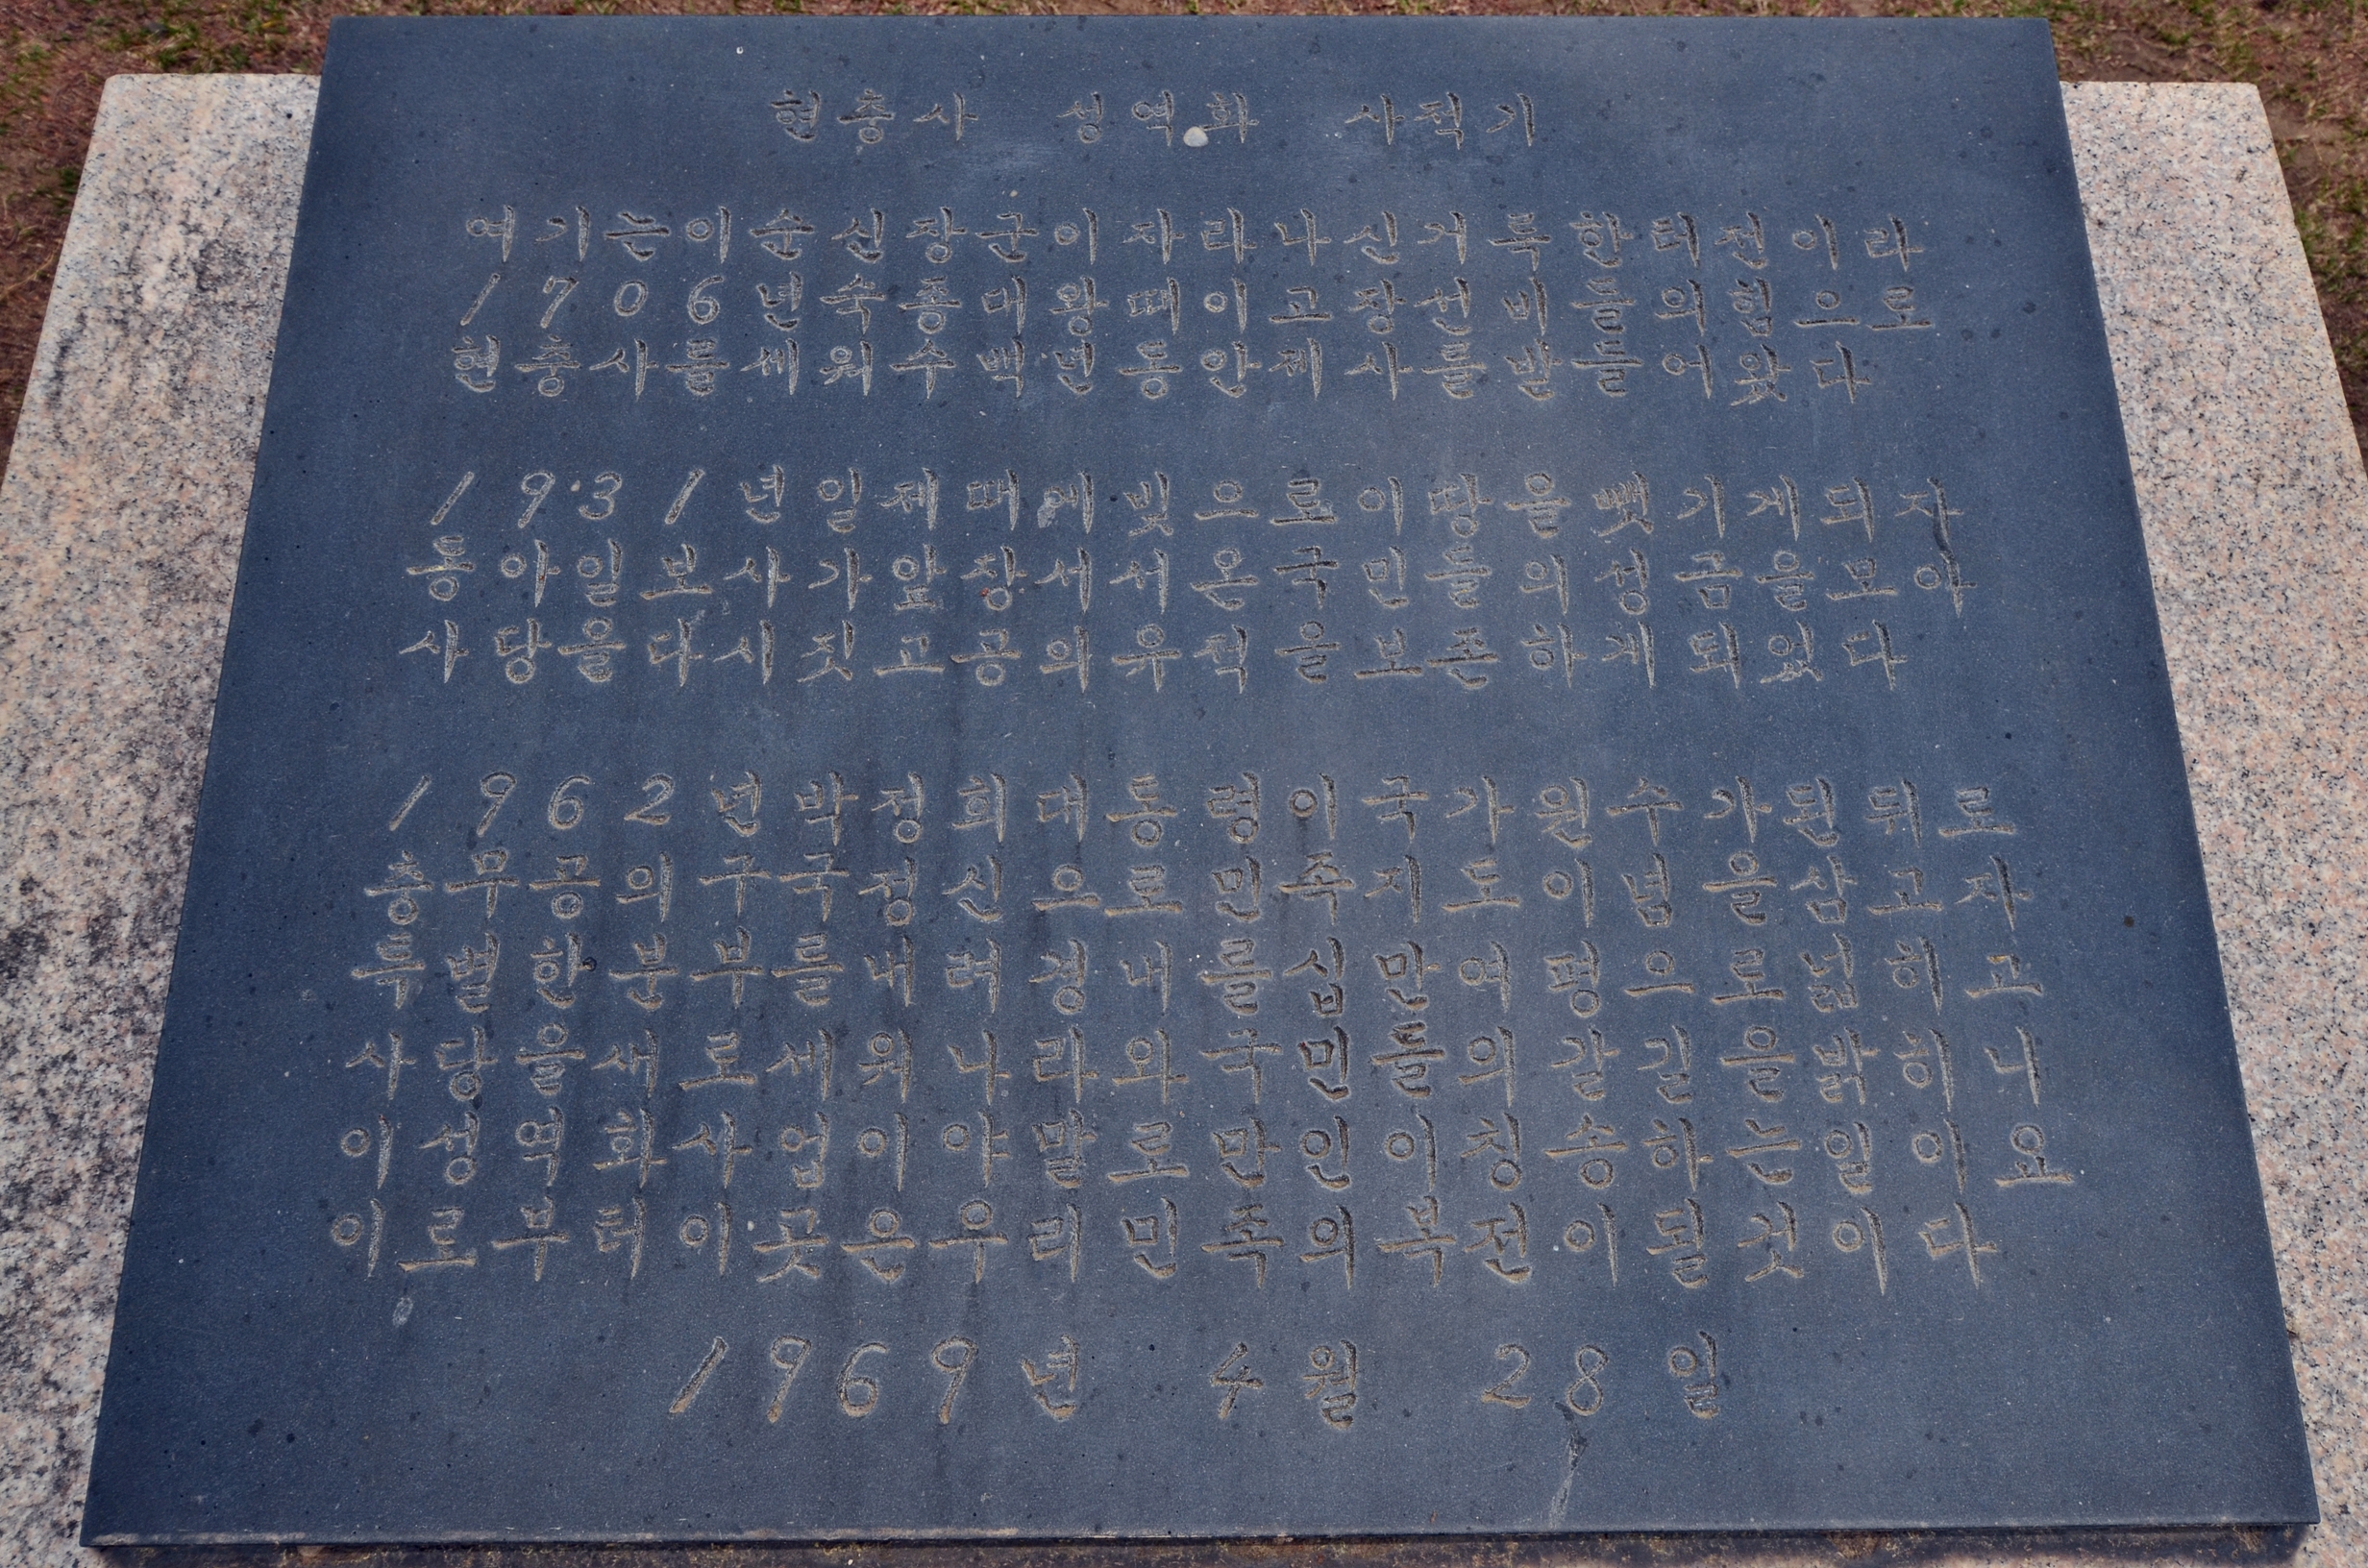 현충사 성역화 사적기
여기는이순신장군이자리나신거룩한터전이라
1706년숙종대왕때이고장선비들의힘으로
현충사를세워수백년동안제사를받들어왔다
1931년일제때에빚으로이땅을뺏기게되자
동아일보사가앞장서서온국민들의성금을모아
사당을다시짓고공의유적을보존하게되었다
1962년박정희대통령이국가원수가된뒤로
충무공의구국정신으로민족지도이념을삼고자
특별한분부를내려경내를십만여평으로넓히고
사당을새로세워나라와국민들의갈길을밝히니
이성역화사업이야말로만인이칭송하는일이요
이로부터이곳은우리민족의복전이될것이다
1969년 4월 28일